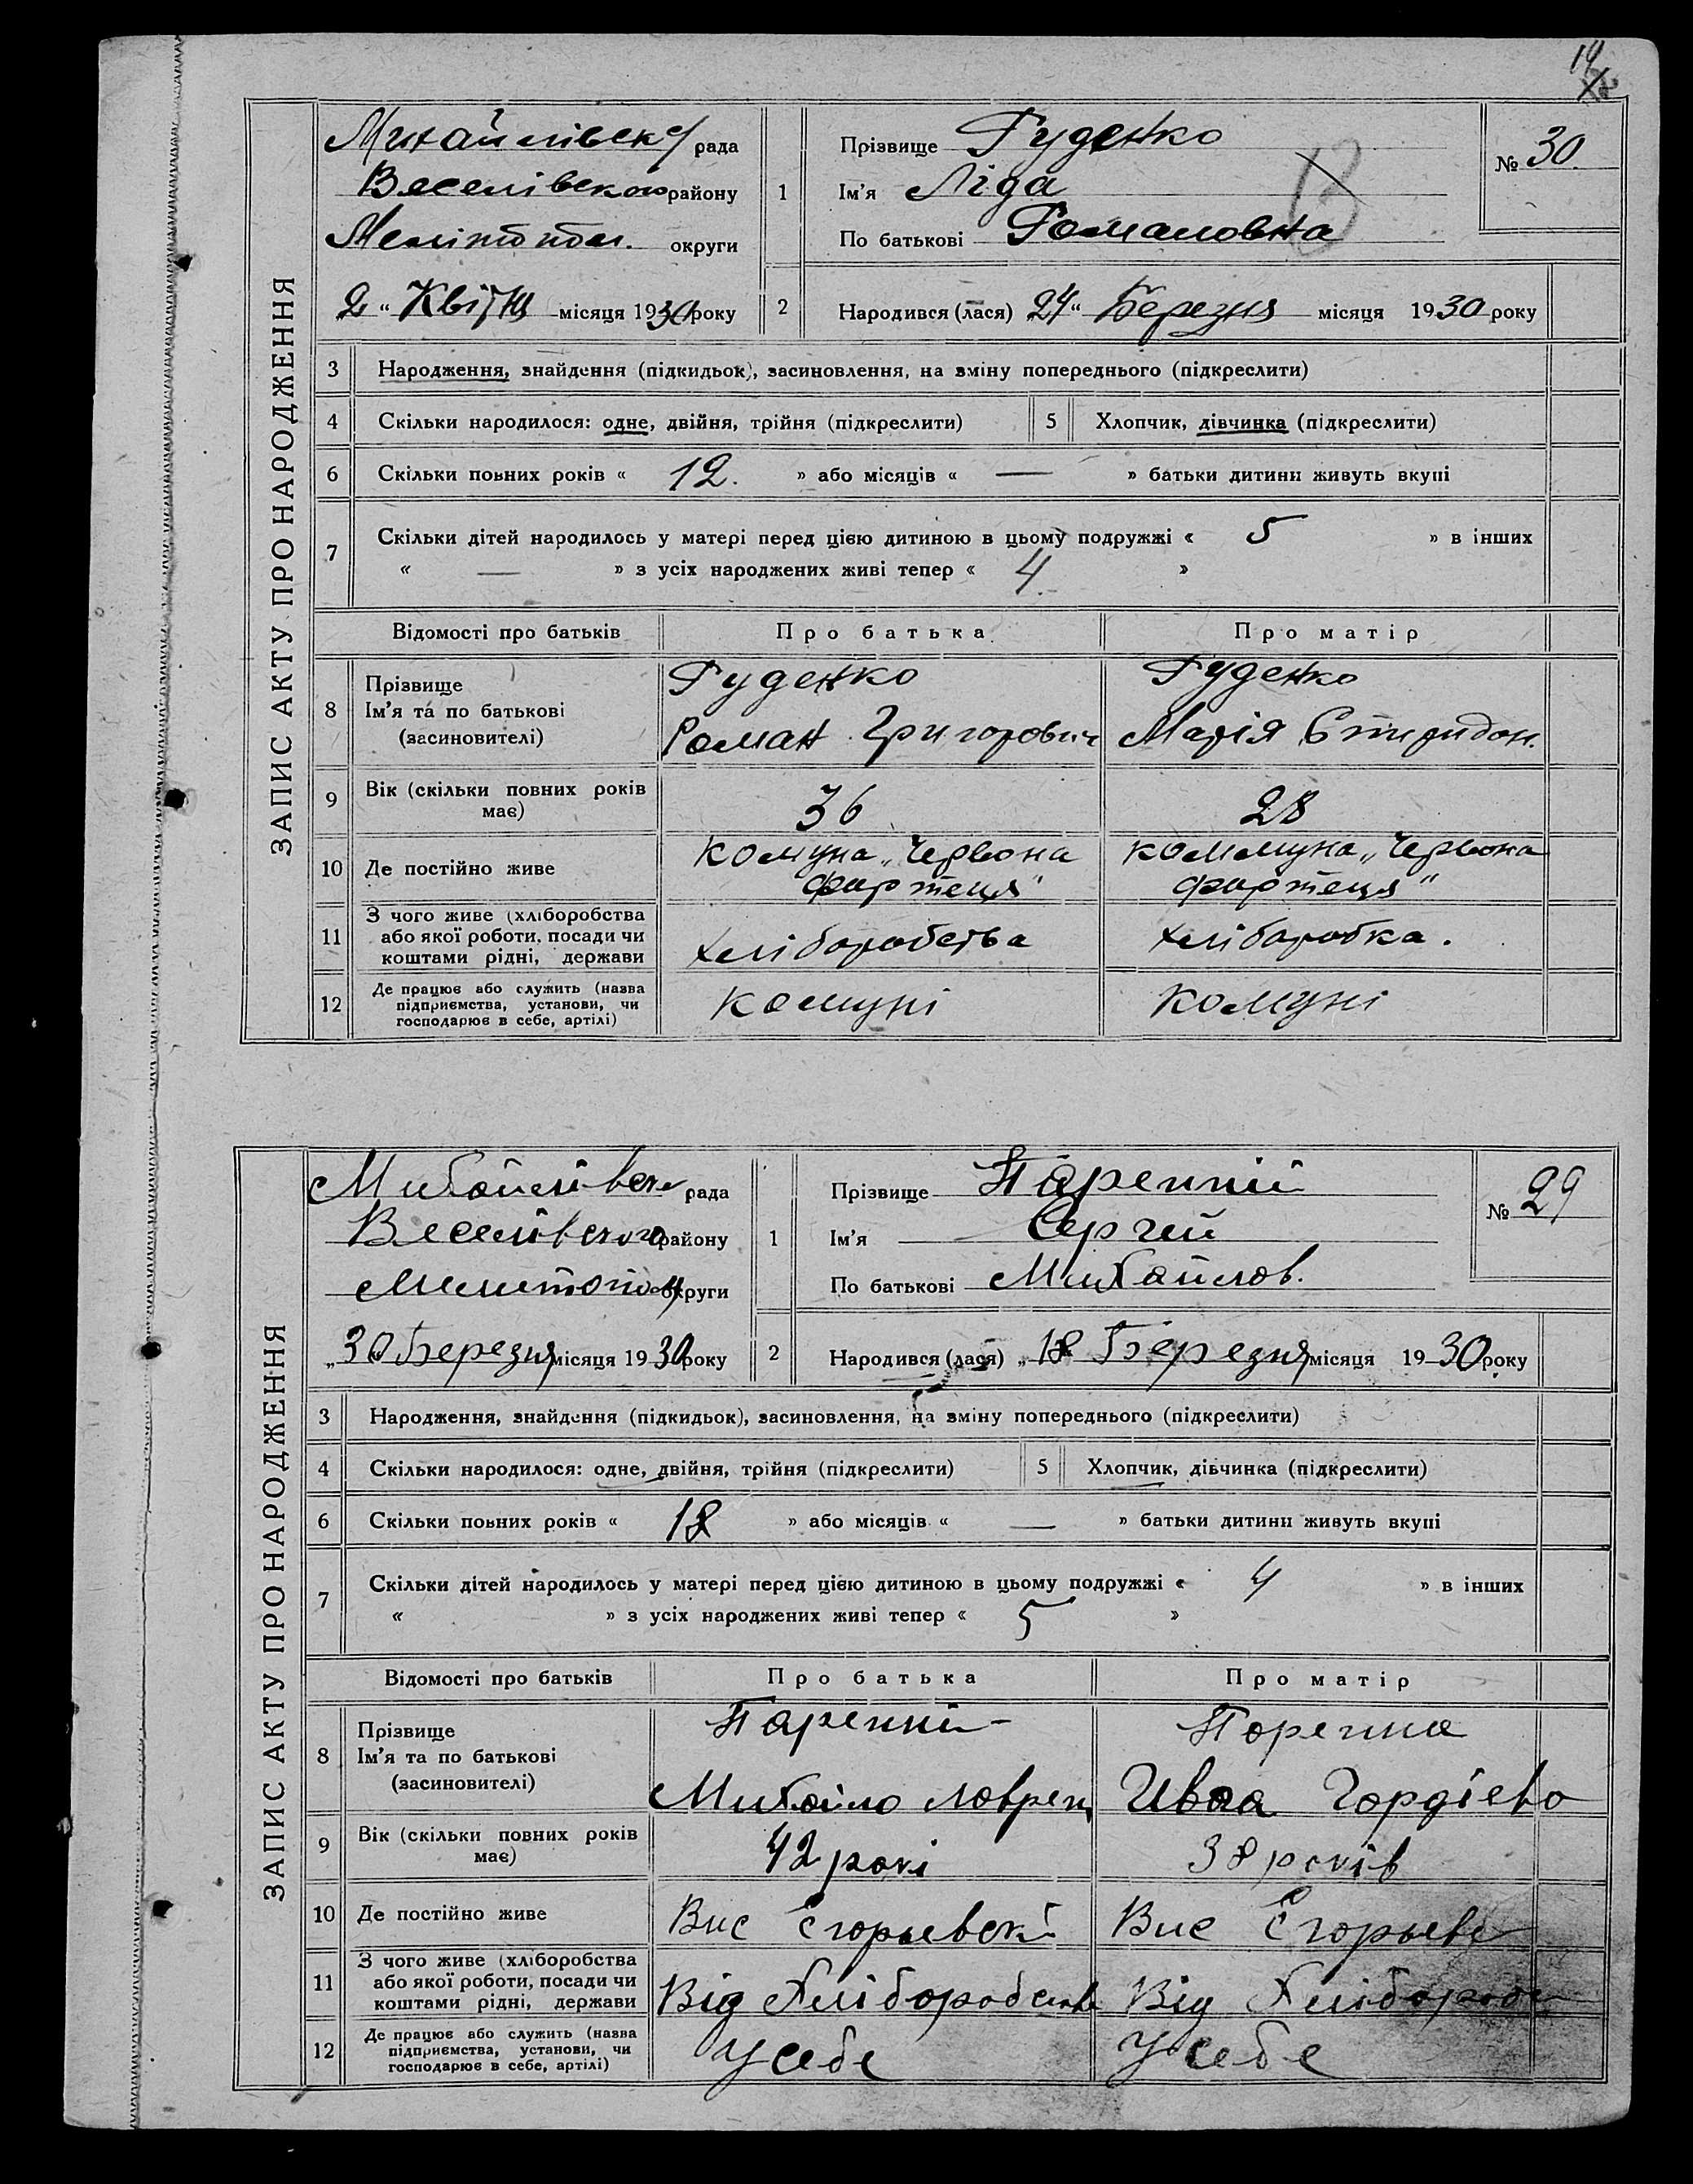 14
ЗАПИС АКТУ ПРО НАРОДЖЕННЯ
Михайлівск рада
Веселівского району
Мелітопол. округи
„2“ Квітня місяця 1930 року
1 Прізвище Руденко
Ім’я Ліда
По батькові Романовна
№ 30.
2 Народився (лася) „24“ Березня місяця 1930 року
3 Народження, знайдення (підкидьок), засиновлення, на зміну попереднього (підкреслити)
4 Скільки народилося: одне, двійня, трійня (підкреслити) 5 Хлопчик, дівчинка (підкреслити)
6 Скільки повних років « 12. » або місяців « — » батьки дитини живуть вкупі
7 Скільки дітей народилось у матері перед цією дитиною в цьому подружжі « 5 » в інших
« — » з усіх народжених живі тепер « 4. »
Відомості про батьків Про батька Про матір
8 Прізвище Ім’я та по батькові (засиновителі)
Руденко Руденко
Роман Григорович Марія Спиридон.
9 Вік (скільки повних років має) 36 28
10 Де постійно живе
комуна „Червона коммуна „Червона
фортеця“ фортеця“
11 З чого живе (хліборобства або якої роботи, посади чи коштами рідні, держави
хліборобства хліборобка.
12 Де працює або служить (назва підприємства, установи, чи господарює в себе, артілі)
комуні комуні
ЗАПИС АКТУ ПРО НАРОДЖЕННЯ
Михайлівск рада
Веселівского району
Милитопол округи
„30 Березня місяця 1930 року
1 Прізвище Паренній
Ім’я Сергей
По батькові Михайлов.
№ 29
2 Народився (лася) „18 Березня місяця 1930 року
3 Народження, знайдення (підкидьок), засиновлення, на зміну попереднього (підкреслити)
4 Скільки народилося: одне, двійня, трійня (підкреслити) 5 Хлопчик, дівчинка (підкреслити)
6 Скільки повних років « 18 » або місяців « — » батьки дитини живуть вкупі
7 Скільки дітей народилось у матері перед цією дитиною в цьому подружжі « 4 » в інших
« » з усіх народжених живі тепер « 5 »
Відомості про батьків Про батька Про матір
8 Прізвище Ім’я та по батькові (засиновителі)
Паренній Поренна
Михайло Лаврен Гордієва
9 Вік (скільки повних років має) 42 рокі 38 років
10 Де постійно живе Вис Єгорьевскі Вис Єгорьевс
11 З чого живе (хліборобства або якої роботи, посади чи коштами рідні, держави
Від Хліборобства Від Хлібороб
12 Де працює або служить (назва підприємства, установи, чи господарює в себе, артілі)
У себе У себе